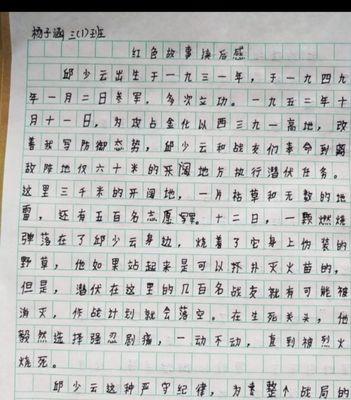 杨子涵 三(1)班
红色故事读后感
邱少云出生于一九三一年，于一九四九
年一月二日参军，多次立功。一九五二年十
月十一日，为攻占金化以西三九一高地，改
善我军防御态势，邱少云和战友们奉令到距
敌阵地仅六十米的开阔地方执行潜伏任务。
这里三千米的开阔地，一片枯草和无数的地
雷，还有五百名志愿军。十二日，一颗燃烧
弹落在了邱少云身边，烧着了它身上伪装的
野草，他如果站起来是可以扑灭火苗的，
但是，潜伏在这里的几百名战友就有可能被
消灭，作战计划就会落空。在生死关头，他
毅然选择强忍剧痛，一动不动，直到被烈火
烧死。
邱少云这种严守纪律，为整个战局的